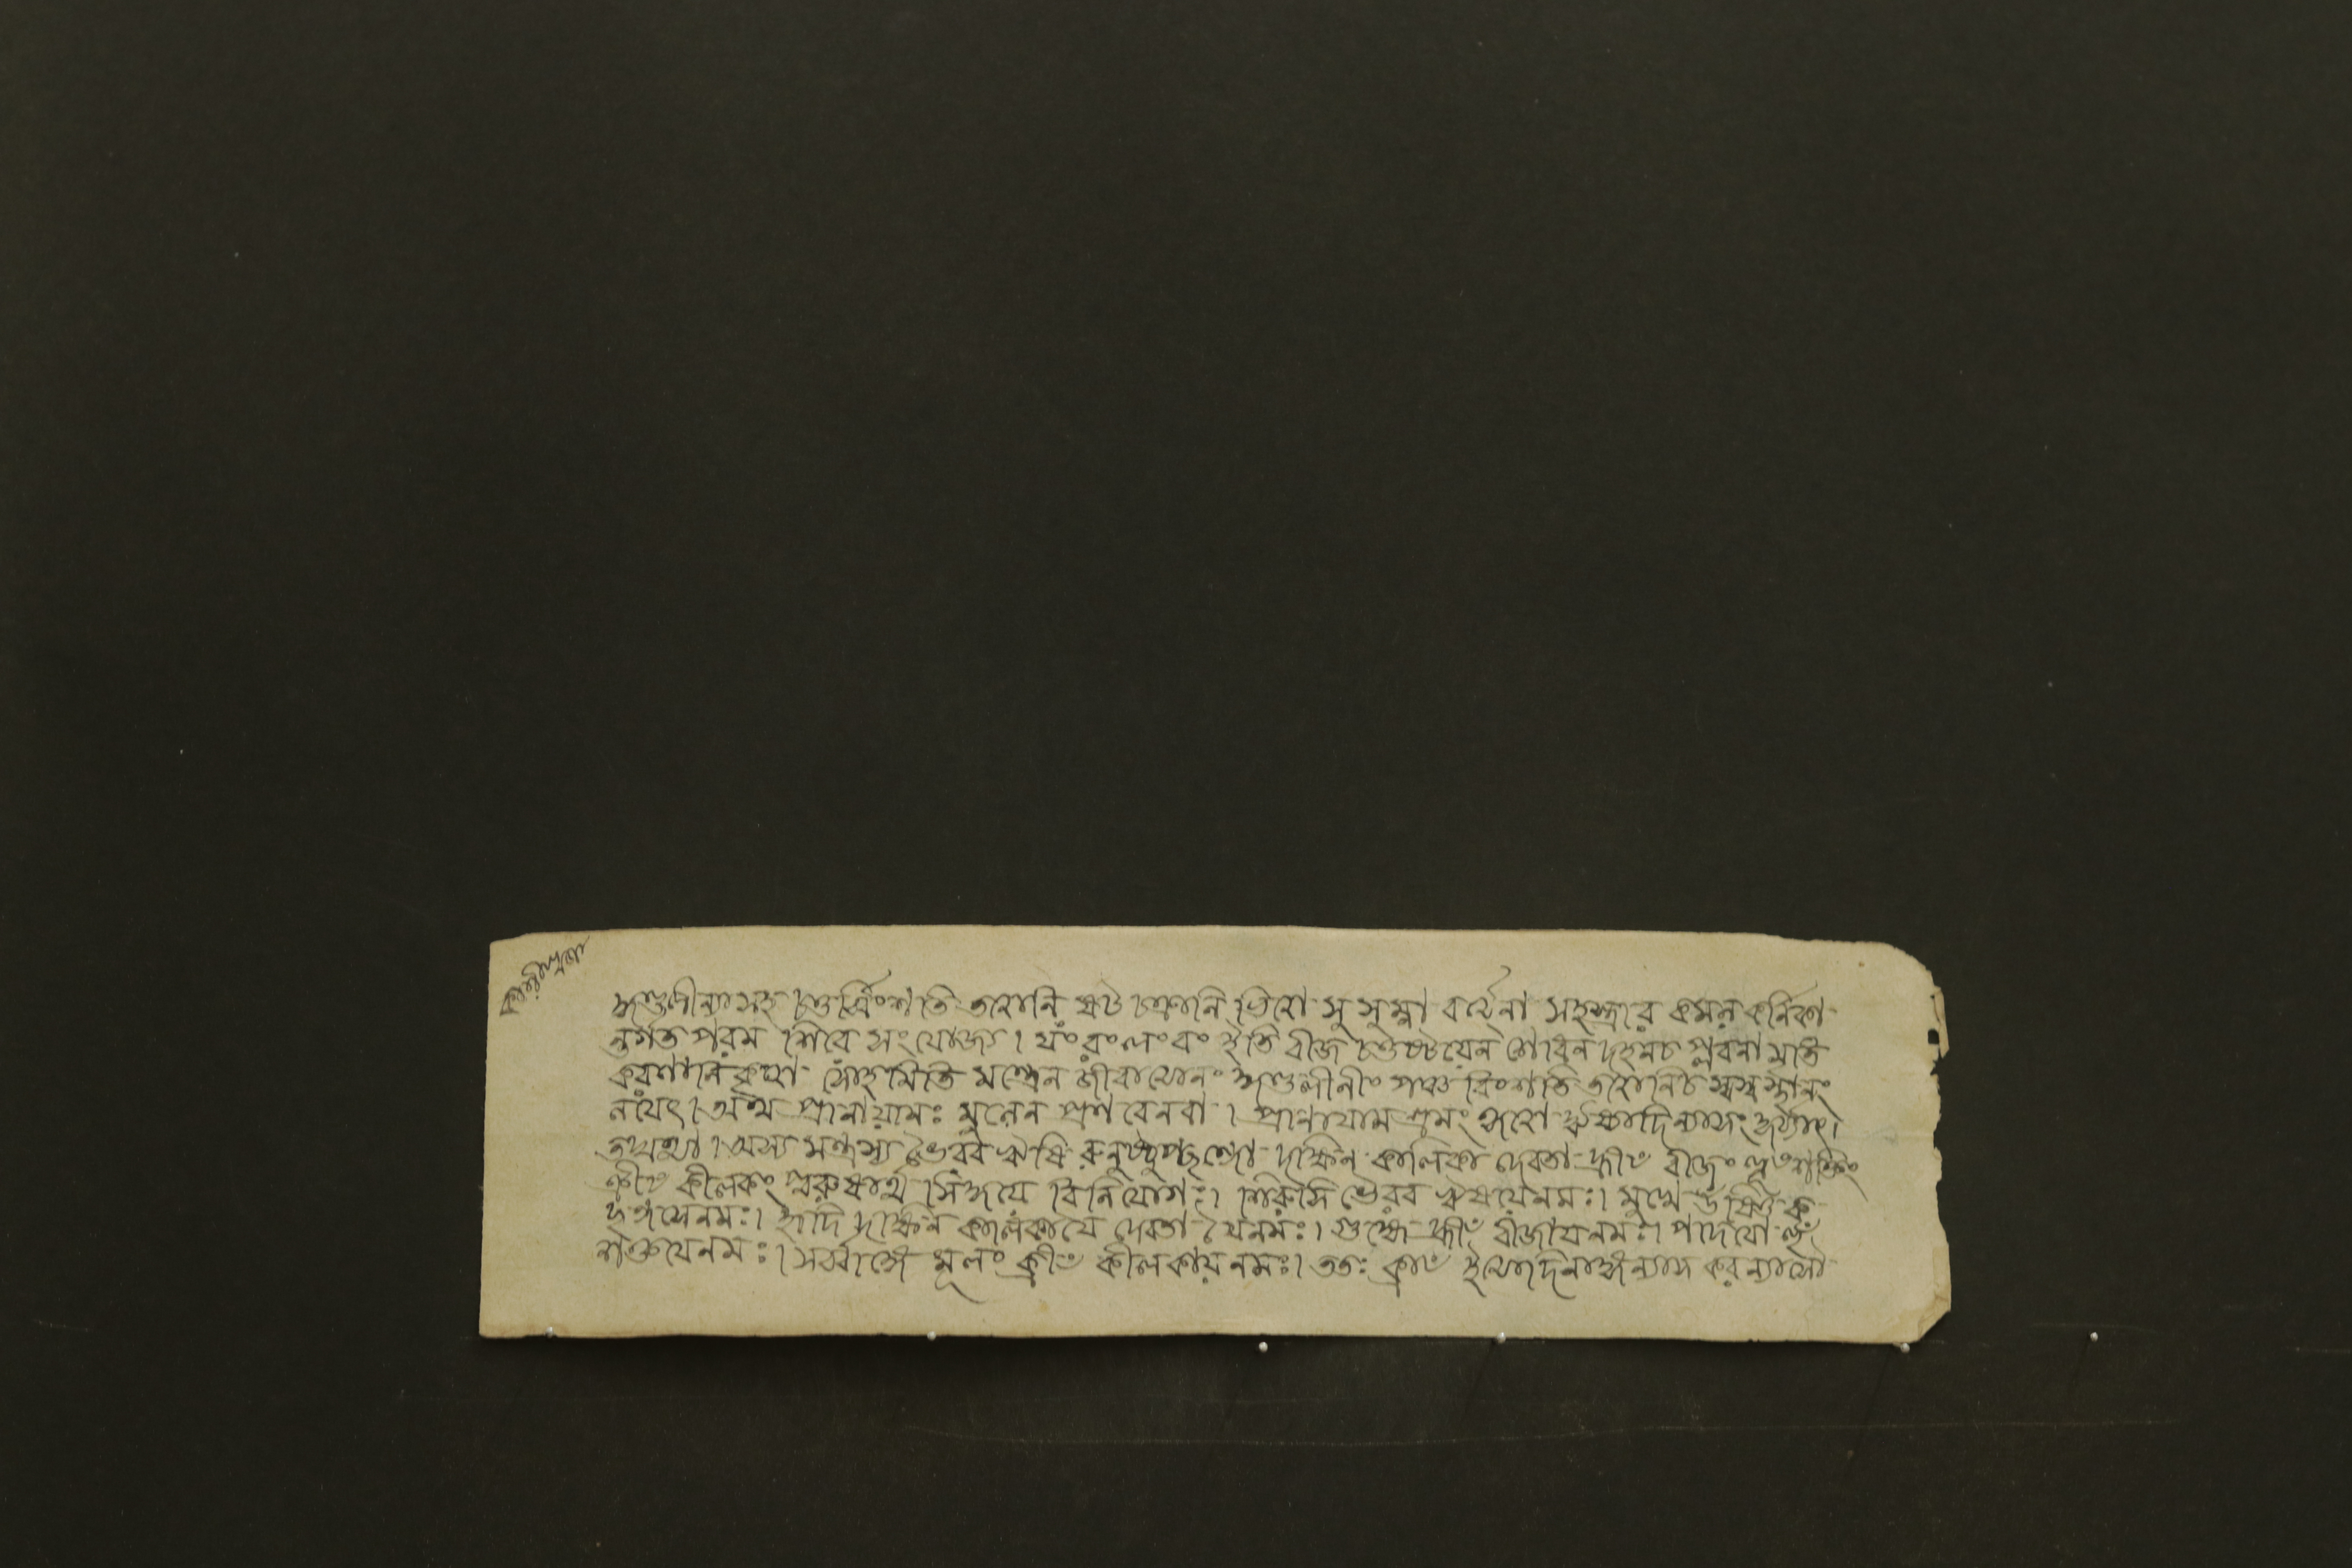 কালীপূজা
কুণ্ডলীন্যা সহ চতুর্ব্বিংশতি তত্বানি ষট চক্রানি ভিত্বা সুসুম্না বর্ত্মনা সহস্রার কমল কর্নিকা
ন্তর্গত পরম শিবে সংযোজ্য। যং রং লং বং ইতি বীজ চতুষ্টয়েন শোষন দহনচ প্লবনা মৃতি
করণানি কৃত্বা সোঁহমিতি মন্ত্রেন জীবাত্মানং কুণ্ডলীনীং পঞ্চ বিংশতি তত্বানিচ স্বস্ব স্থানং
নয়েৎ। অথ প্রানায়ামঃ মূলেন প্রণবেনবা। প্রানায়াম ত্রয়ং কৃত্বা ঋষ্যাদিন্যাসং কুর্য্যাৎ।
তদ্যথা। অস্য মন্ত্রস্য ভৈরব ঋষি রুনুষ্টুপ্ছন্দো দক্ষিন কালিকা দেবতা হ্রীঁ বীজং হূঁ শক্তিং
ক্রীঁ কীলকং পুরুষার্থ সিদ্ধয়ে বিনিযোগঃ। শিরসি ভৈরব ঋষয়েনমঃ। মুখে উষ্ণিক
ছন্দসেনমঃ। হৃদি দক্ষিন কালিকায়ৈ দেবতায়ৈনমঃ। গুহ্যে হ্রীঁ বীজায়নমঃ। পাদয়ো হূঁ
শক্তয়েনমঃ। সর্ব্বাঙ্গে মূলং ক্রীঁ কীলকায়নমঃ। ততঃ ক্রাঁ ইত্যাদিনাঙ্গন্যাস করন্যাসৌ